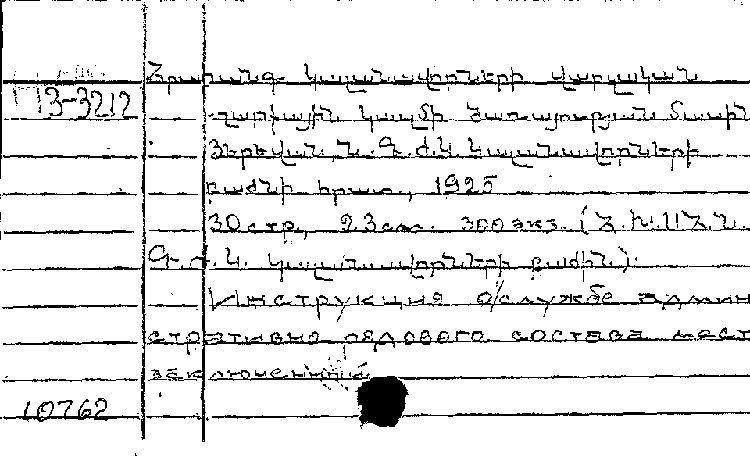 Հրահանգ կալանավորների վարչական
П3-3212
-շարքային կազմի ծառայության մասին
Յերեվան, Ն. Գ. Ժ. Կ. Կալանավորների
բաժնի հրատ., 1925
30 стр., 23 см. 300 экз. (Հ. Խ. Ս. Հ. Ն.
Գ. Ժ. Կ. կալանավորների բաժին).
Инструкция о службе админ
стративно рядового состава мест
заключений
10762